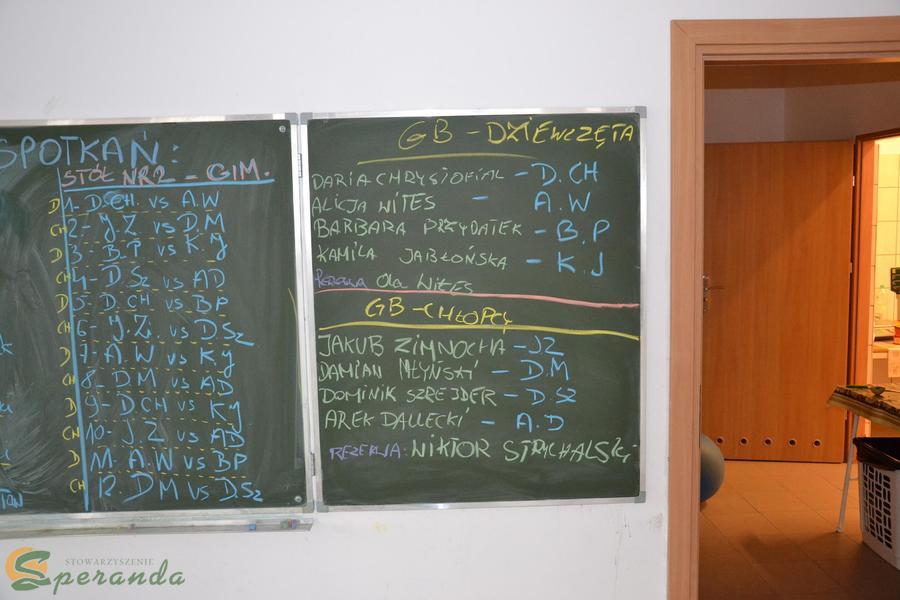 SPOTKAŃ:
STÓŁ NR2 - GIM.
D 1- D.CH. vs A.W
CH 2- J.Z vs D.M
D 3- B.P vs KJ
CH 4- D.Sz vs AD
D 5- D.CH vs BP
CH 6- J.Z. vs DSz
D 7- A.W vs KJ
CH 8- DM vs AD
D 9- DCH vs KJ
CH 10- J.Z vs AD
D 11. A.W vs BP
CH 12. DM vs D.Sz
GB - DZIEWCZĘTA
DARIA CHRYSTOFIAL - D.CH
ALICJA WITES - A.W
BARBARA PRZYDATEK - B.P
KAMILA JABŁOŃSKA - K.J
Ola Wites
GB - CHŁOPCY
JAKUB ZIMNOCHA - JZ
DAMIAN MŁYŃSKI - D.M
DOMINIK SZREJDER - D.SZ
AREK DALLECKI - A.D
REZERWA: WIKTOR STRYCHALSKI
STOWARZYSZENIE
Speranda